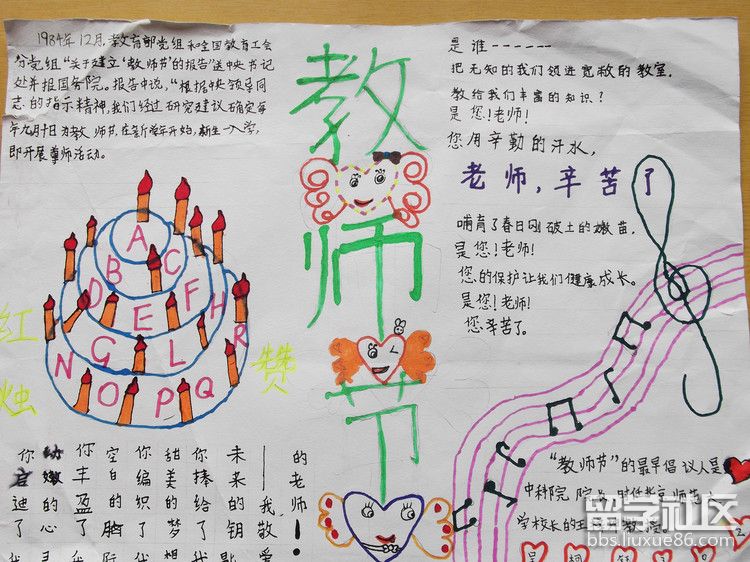 1984年12月,教育部党组和全国教育工会
分党组“关于建立‘教师节’的报告”送中央书记
处并报国务院。报告中说,“根据中央领导同
志的指示精神,我们经过研究建议确定每
年九月十日为教师节,在新学年开始,新生一入学,
即开展尊师活动。
教师节
是谁------
把无知的我们领进宽敞的教室,
教给我们丰富的知识?
是您!老师!
您用辛勤的汗水,
老师,辛苦了
哺育了春日刚破土的嫩苗,
是您!老师!
您的保护让我们健康成长。
是您!老师!
您辛苦了。
红烛
赞
A
B C
D E F H
G L R
N O P Q
你
启
迪
了
我
幼
嫩
的
心
灵
你
丰
盈
了
我
空
白
的
脑
际
你
编
织
了
我
甜
美
的
梦
想
你
捧
给
了
我
未
来
的
钥
匙
我
敬
爱
的
老
师
!
“教师节”的最早倡议人是
中科院院
师范
学校长的王
教授。
留学社区
bbs.liuxue86.com